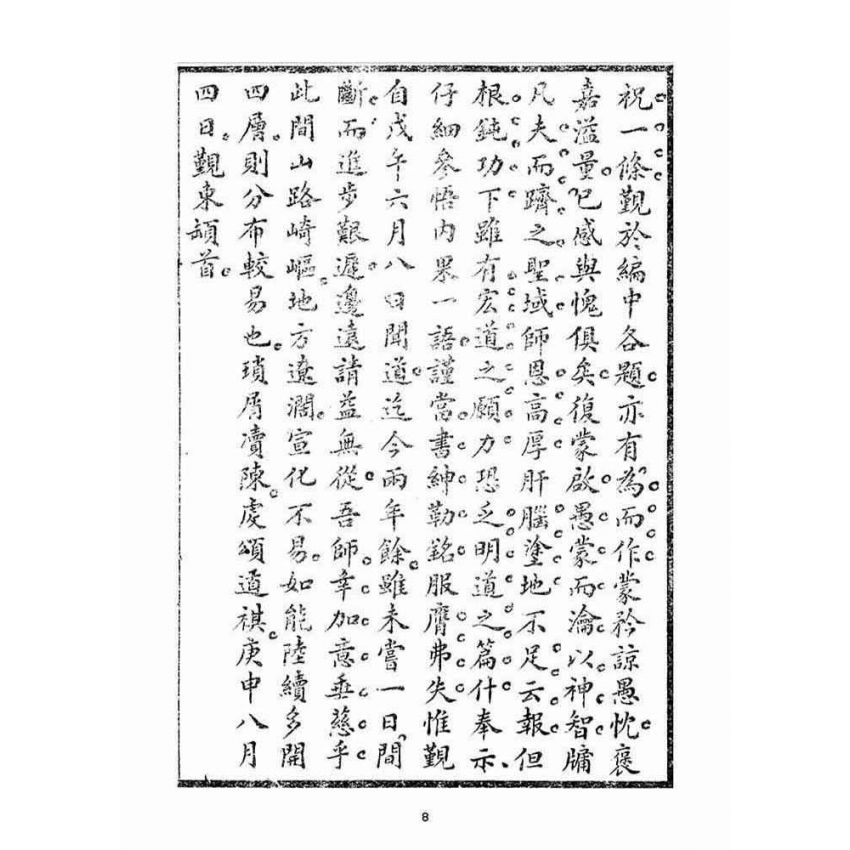 祝一條觀於編中各題亦有為而作蒙矜諒愚忱褒
嘉溢量已感與愧俱矣復蒙啟愚蒙而瀹以神智牖
凡夫而躋之聖域師恩高厚肝腦塗地不足云報但
根鈍功下雖有宏道之願力恐乏明道之篇什奉示
仔細參悟內果一語謹當書紳勒銘服膺弗失惟觀
自戊午六月八日聞道迄今兩年餘雖未嘗一日間
斷而進步艱遲邊遠請益無從吾師幸加意垂慈乎
此間山路崎嶇地方遼濶宣化不易如能陸續多開
四層則分布較易也瑣屑瀆陳虔頌道祺庚申八月
四日觀東頓首
8